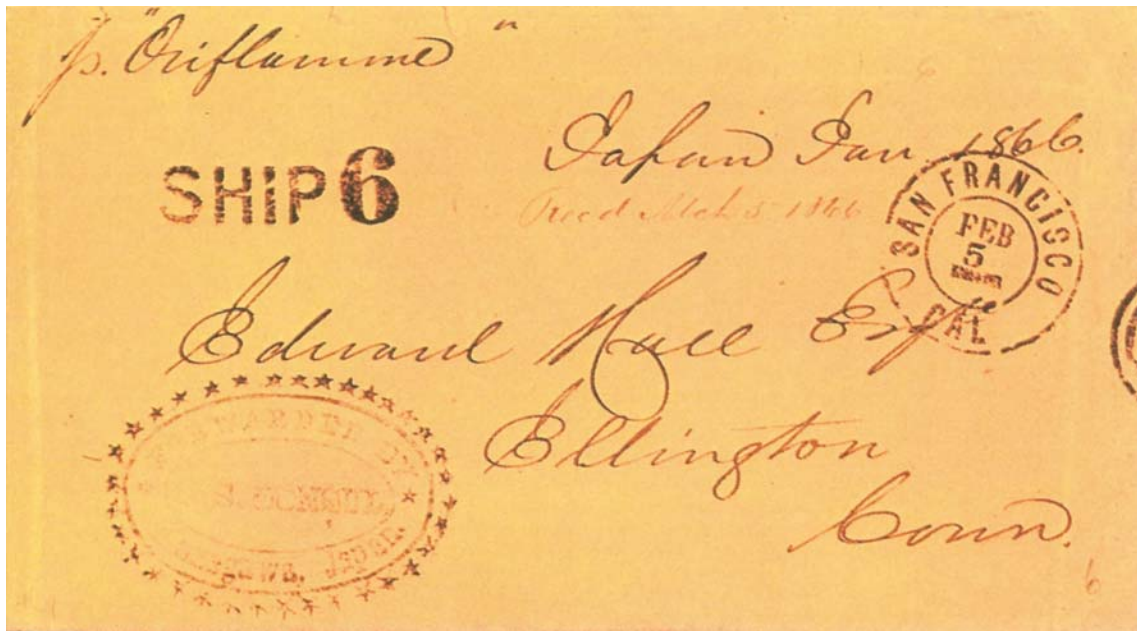 p. "Oriflamme"
Japan Jan. 1866.
SHIP 6
Recd Mch 5 1866
SAN FRANCISCO
FEB
5
CAL
Edward Hall Esq
Ellington
Conn.
FORWARDED BY
U.S. CONSUL,
Japan.
6